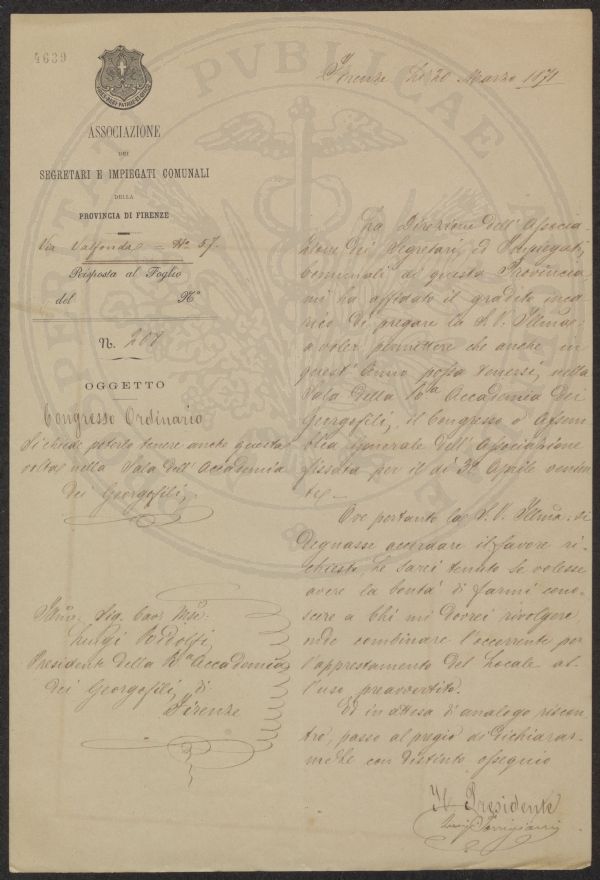 4639
Firenze li 20 Marzo 1871
ASSOCIAZIONE
DEI
SEGRETARI E IMPIEGATI COMUNALI
DELLA
PROVINCIA DI FIRENZE
Via Valfonda = N.º 57.
Risposta al Foglio
del N.º
N. 207
OGGETTO
Congresso Ordinario
Si chiede poterlo tenere anche questa
volta nella Sala dell'Accademia
dei Georgofili.
Illmo. Sig. Cav. Mse.
Luigi Ridolfi,
Presidente della Ra. Accademia
dei Georgofili, di
Firenze
La Direzione dell'Associa-
zione dei Segretari ed Impiegati
Comunali di questa Provincia
mi ha affidato il gradito inca-
rico di pregare la S.V. Illma:
a voler permettere che anche in
quest'Anno possa tenersi, nella
Sala della Ra. Accademia dei
Georgofili, il Congresso o Assem-
blea Generale dell'Associazione
fissata per il dì Aprile venien-
te. —
Ove pertanto la S.V. Illma: si
degnasse accordare il favore ri-
chiesto, Le sarei tenuto se volesse
avere la bontà di farmi cono-
scere a Chi mi dovrei rivolgere
onde combinare l'occorrente per
l'apprestamento del Locale al-
l'uso preavvertito.
Ed in attesa di analogo riscon-
tro, passo al pregio di dichiarar-
mele con distinto ossequio
Il Presidente
PUBLICAE